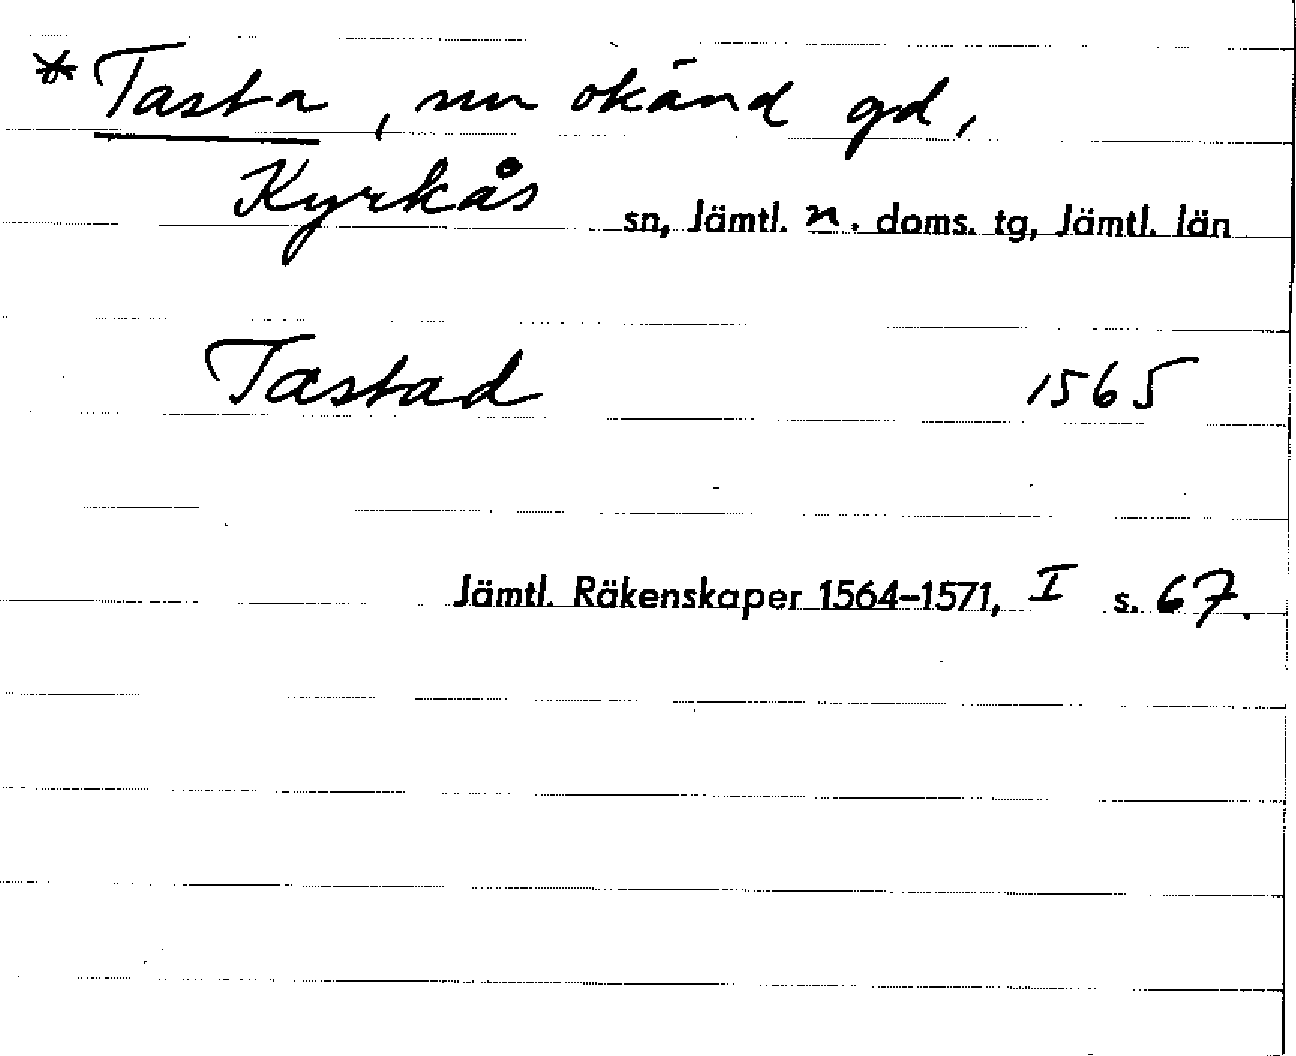 * Tasta, nu okänd gd,
Kyrkås sn, Jämtl. n. doms. tg, Jämtl. län
Tastad 1565
Jämtl. Räkenskaper 1564–1571, I s. 67.